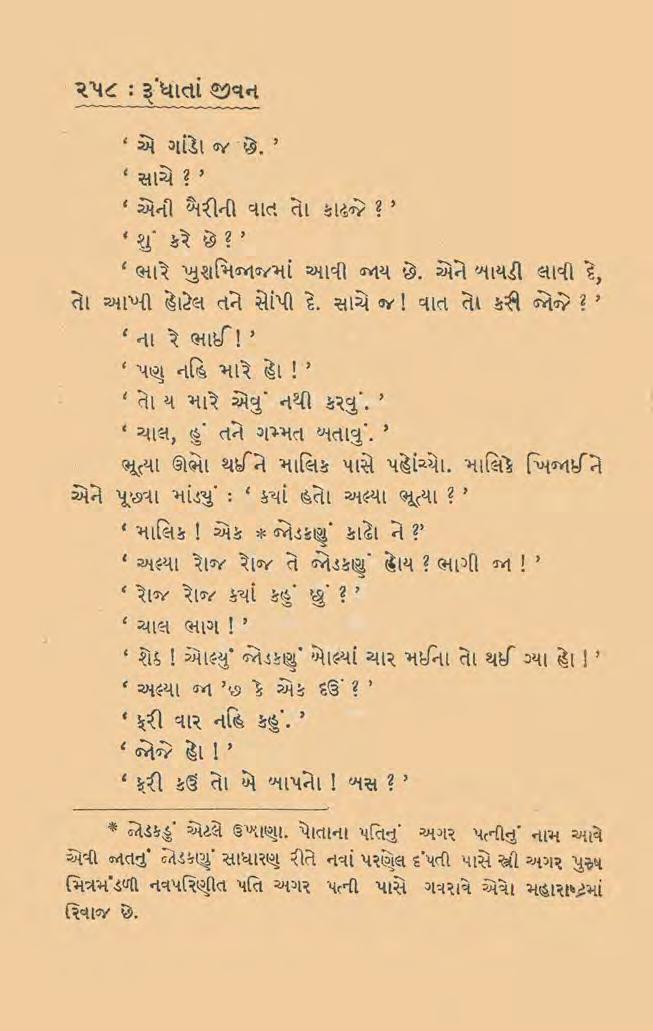 ૨૫૮ : રૂંધાતાં જીવન
‘ એ ગાંડો જ છે. ’
‘ સાચે ? ’
‘ એની બૈરીની વાત તો કાઢજે ? ’
‘ શું કરે છે ? ’
‘ ભારે ખુશમિજાજમાં આવી જાય છે. એને બાયડી લાવી દે,
તો આખી હોટેલ તને સોંપી દે. સાચે જ ! વાત તો કરી જોજે ? ’
‘ ના રે ભાઈ ! ’
‘ પણ નહિ મારે હો ! ’
‘ તો ય મારે એવું નથી કરવું. ’
‘ ચાલ, હું તને ગમ્મત બતાવું. ’
ભૂત્યા ઊભો થઈને માલિક પાસે પહોંચ્યો. માલિકે ખિજાઈને
એને પૂછવા માંડ્યું : ‘ કયાં હતો અલ્યા ભૂત્યા ? ’
‘ માલિક ! એક * જોડકણું કાઢો ને ?’
‘ અલ્યા રોજ રોજ તે જોડકણું હોય ? ભાગી જા ! ’
‘ રોજ રોજ કયાં કહું છું ? ’
‘ ચાલ ભાગ ! ’
‘ શેઠ ! ઓલ્યું જોડકણું બોલ્યાં ચાર મઈના તો થઈ ગ્યા હો ! ’
‘ અલ્યા જા ’છ કે એક દઉં ? ’
‘ ફરી વાર નહિ કહું. ’
‘ જોજે હો ! ’
‘ ફરી કઉં તો બે બાપનો ! બસ ? ’
* જોડકડું એટલે ઉખાણા. પોતાના પતિનું અગર પત્નીનું નામ આવે
એવી જાતનું જોડકણું સાધારણ રીતે નવાં પરણેલ દંપતી પાસે સ્ત્રી અગર પુરુષ
મિત્રમંડળી નવપરિણીત પતિ અગર પત્ની પાસે ગવરાવે એવો મહારાષ્ટ્રમાં
રિવાજ છે.